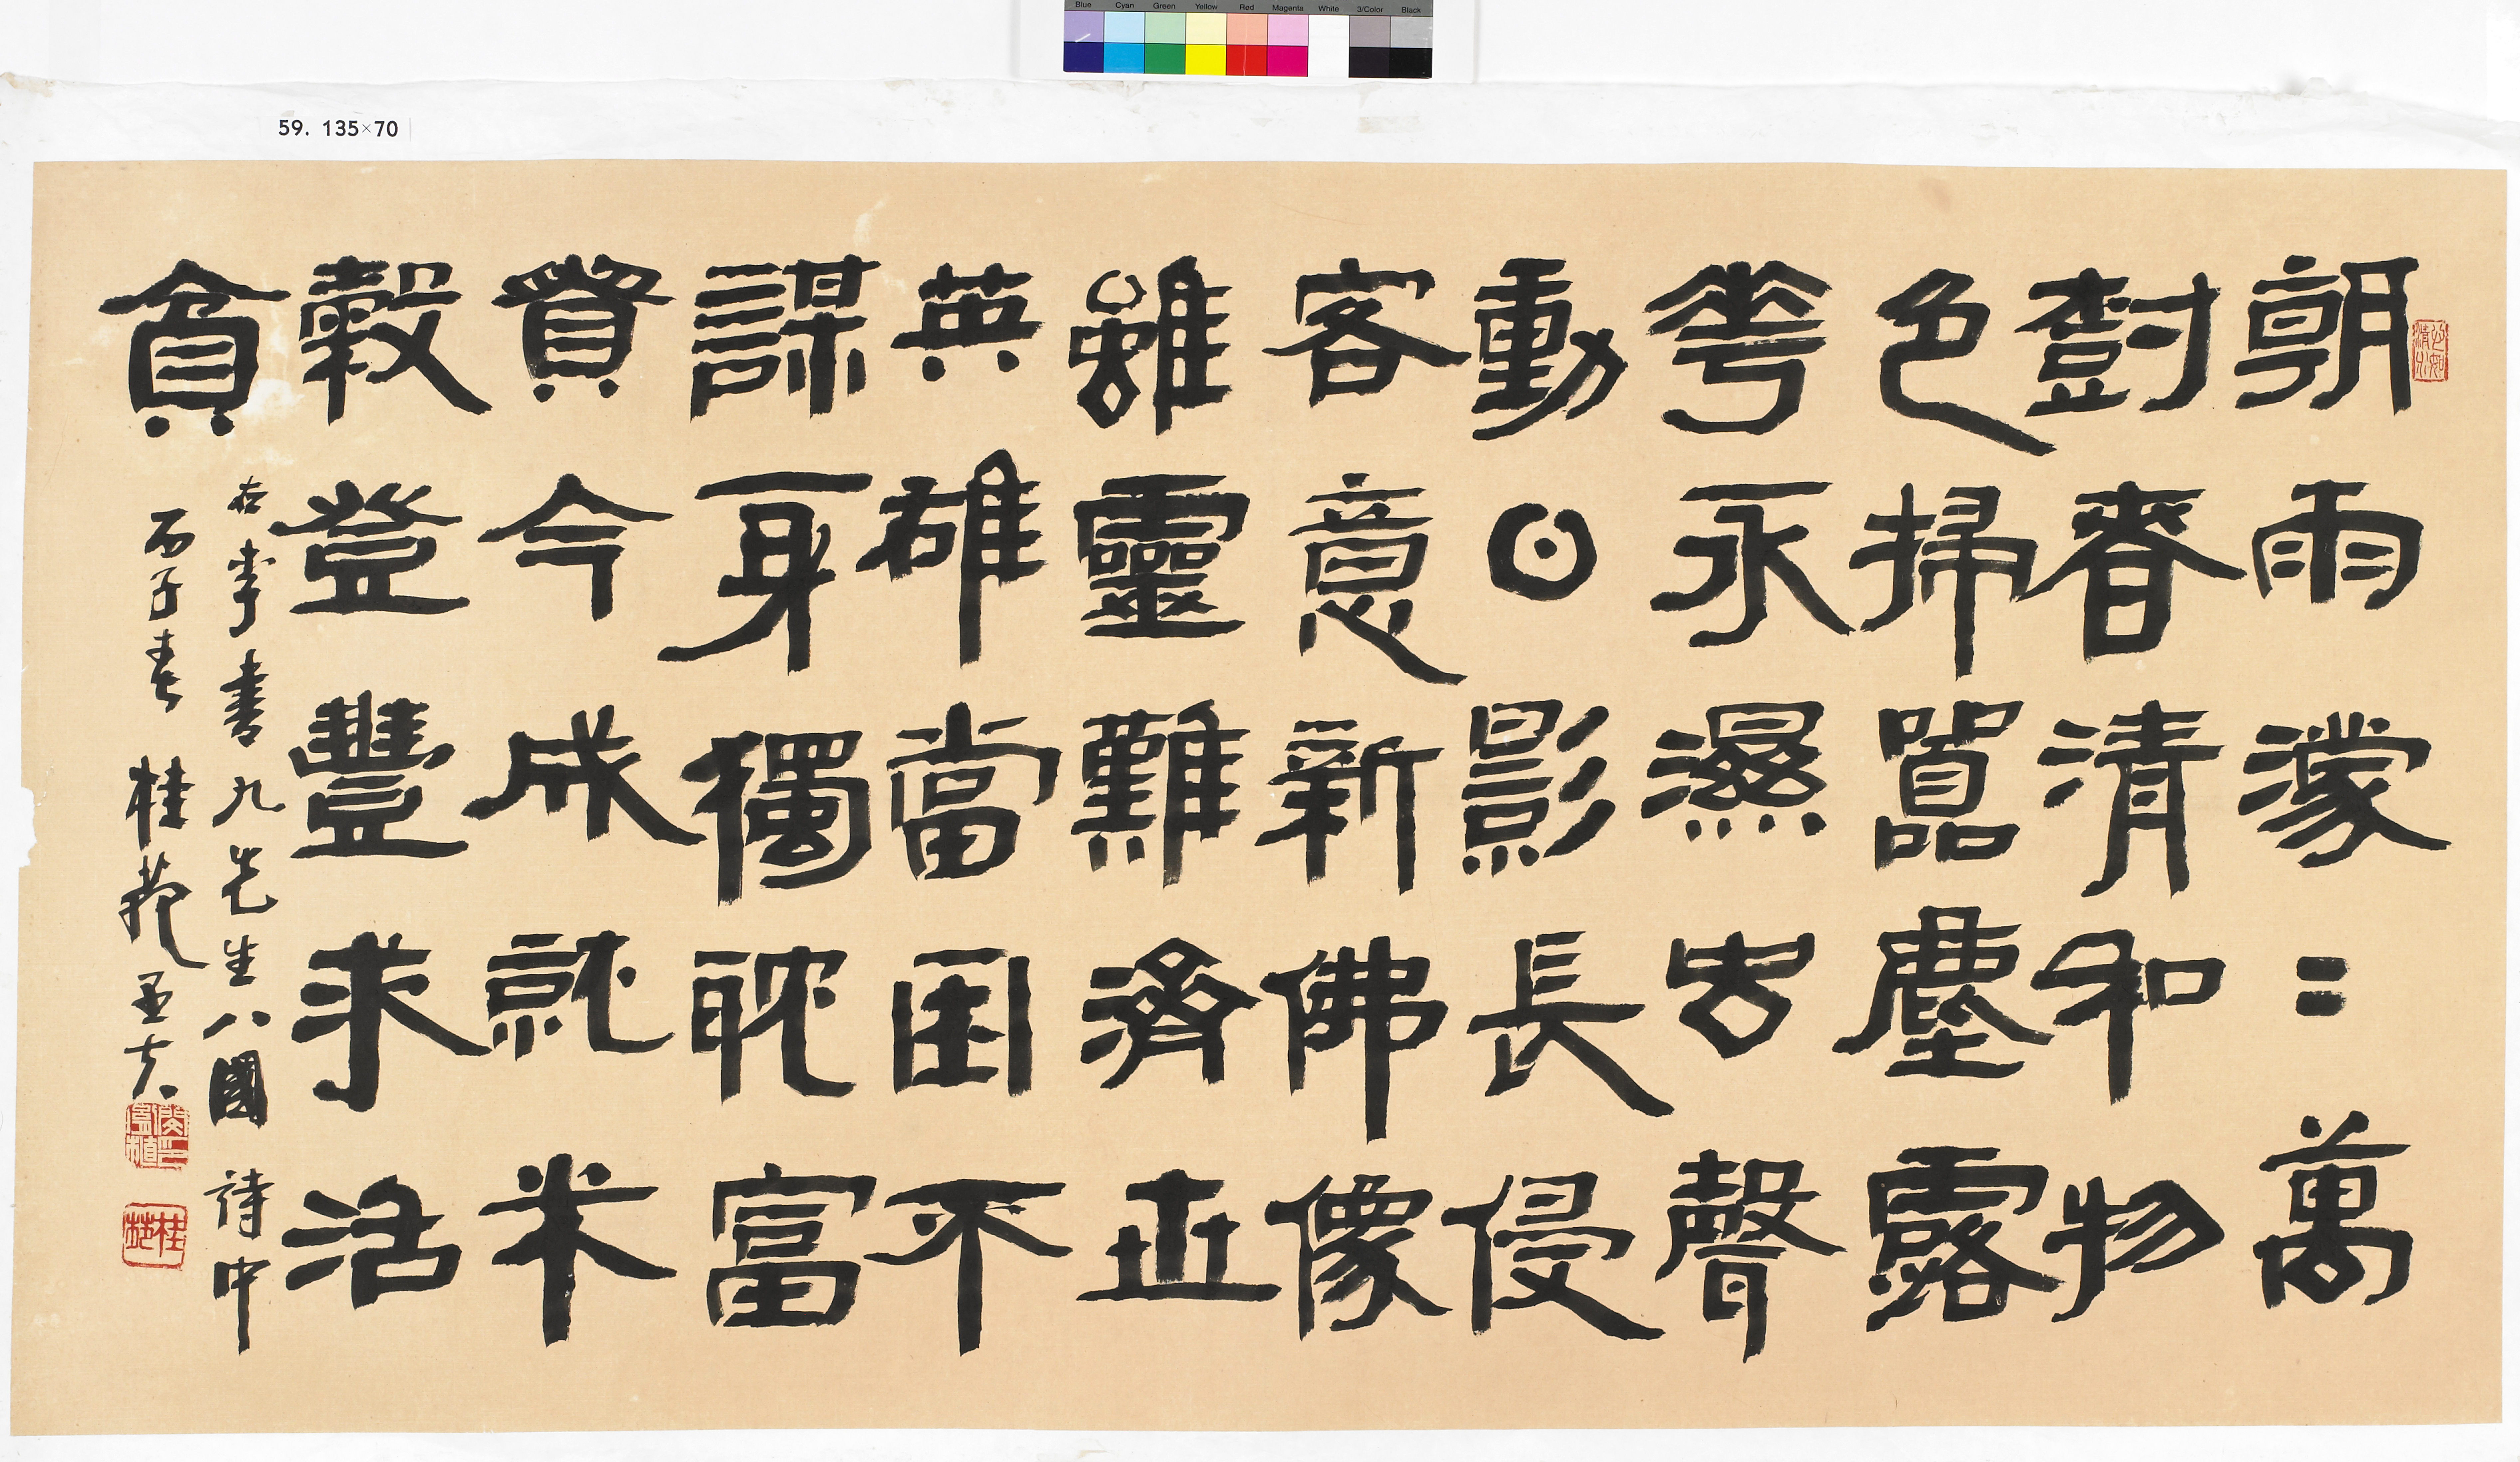 Blue Cyan Green Yellow Red Magenta White 3/Color Black
59. 135×70
朝雨濛〻萬
樹春清和物
色掃囂塵露
華永濕古聲
動日影長侵
客意新佛像
雖靈難濟世
英雄當困不
謀身獨耽富
貴今成就米
穀登豐求活
貧
右李書九先生八國詩中
丙子春 桂苑